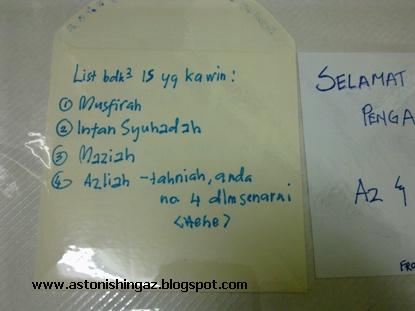 List bdk³ IS yg kawin :
① Musfirah
② Intan Syuhadah
③ Maziah
④ Azliah - tahniah, anda
no 4 dlm senarai
<Hehe>
SELAMAT
PENGA
AZ &
FRO
www.astonishingaz.blogspot.com